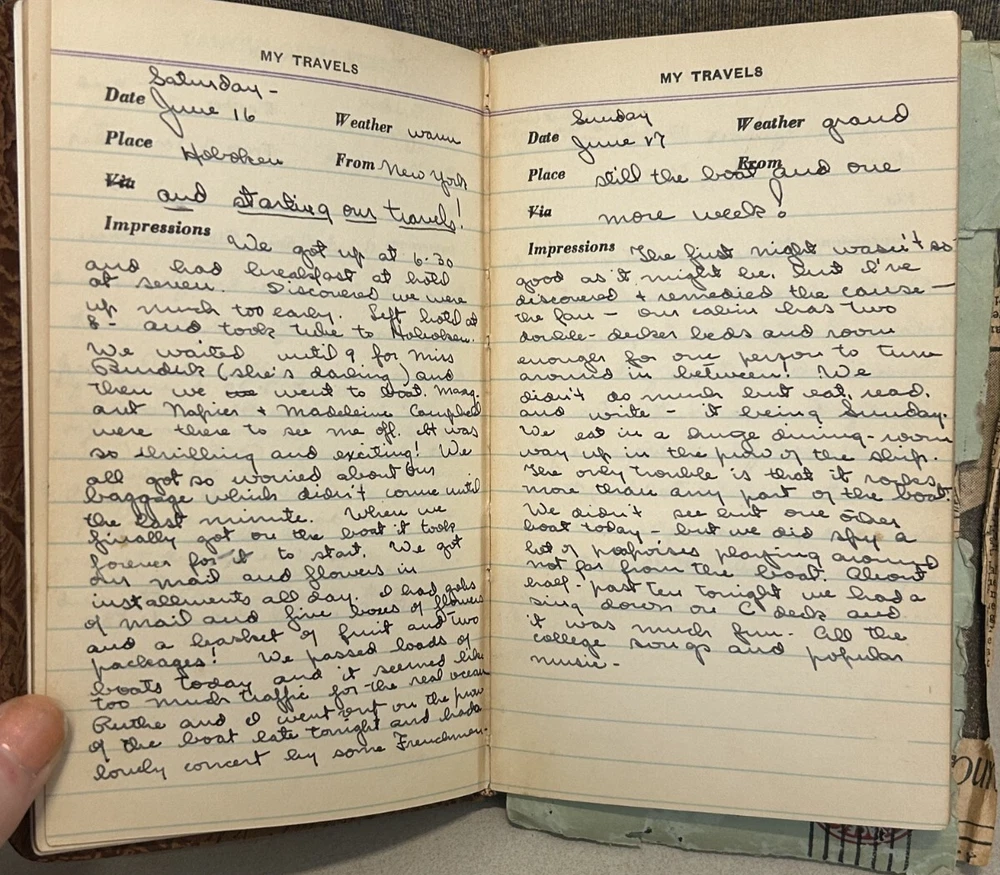 MY TRAVELS
Saturday -
Date June 16 Weather warm
Place Hoboken From New York
Via and starting our travels!
Impressions We got up at 6:30
and had breakfast at hotel
at seven. Discovered we were
up much too early. Left hotel at
8 - and took tube to Hoboken.
We waited until 9 for Miss
Burdick (she's darling) and
then we went to boat. Marg-
aret Napier + Madeleine Campbell
were there to see me off. It was
so thrilling and exciting! We
all got so worried about our
baggage which didn't come until
the last minute. When we
finally got on the boat it took
forever for it to start. We got
our mail and flowers in
installments all day. I had gobs
of mail and five boxes of flowers
and a basket of fruit and two
packages! We passed loads of
boats today and it seemed like
too much traffic for the real ocean
Ruthe and I went out on the prow
of the boat late tonight and had a
lovely concert by some Frenchmen.
MY TRAVELS
Sunday
Date June 17 Weather grand
Place still the boat and one From
Via more week!
Impressions The first night wasn't so
good as it might be, but I've
discovered + remedied the cause -
the fan - our cabin has two
double-decker beds and room
enough for one person to turn
around in between! We
didn't do much but eat, read,
and write - it being Sunday.
We eat in a huge dining-room
way up in the prow of the ship.
The only trouble is that it
more than any part of the boat.
We didn't see but one other
boat today - but we did spy a
lot of porpoises playing around
not far from the boat. About
half-past ten tonight we had a
sing down on C deck and
it was much fun - All the
college songs and popular
music -